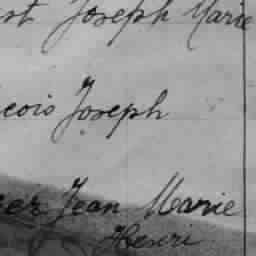 st Joseph Marie
cois Joseph
Jean Marie
Henri